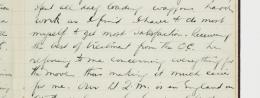 spent all day loading waggons hard
work as I find I have to do most
myself to get most satisfaction. Receiving
the best of treatment from the C.C. he
referring to me concerning everything for
the move thus making it much easier
for me. Our Lt Q.M. is on England on